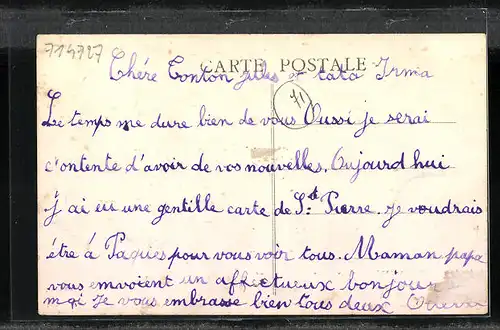 714727
CARTE POSTALE
Chére Tonton jules et tata Irma
Le temps me dure bien de vous Oussi je serai
contente d'avoir de vos nouvelles. Oujourd hui
j ai eu une gentille carte de St Pierre. je voudrais
étre á Paques pour vous voir tous. Maman papa
vous envoient un affectueux bonjour
moi je vous embrasse bien tous deux